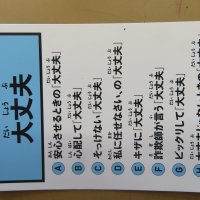 だいじょうぶ
大丈夫
A 安心させるときの「大丈夫」
B 心配して「大丈夫」
C そっけない「大丈夫」
D 私に任せなさい、の「大丈夫」
E キザに「大丈夫」
F 詐欺師が言う「大丈夫」
G ビックリして「大丈夫」